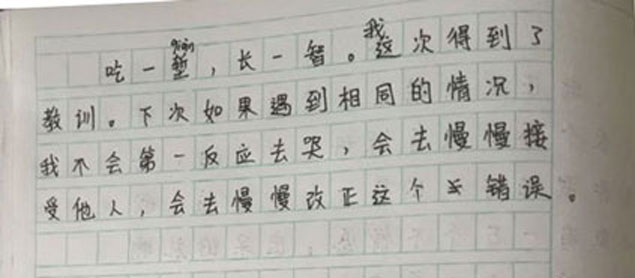 吃一堑，长一智。我这次得到了
教训。下次如果遇到相同的情况，
我不会第一反应去哭，会去慢慢接
受他人，会去慢慢改正这个错误。